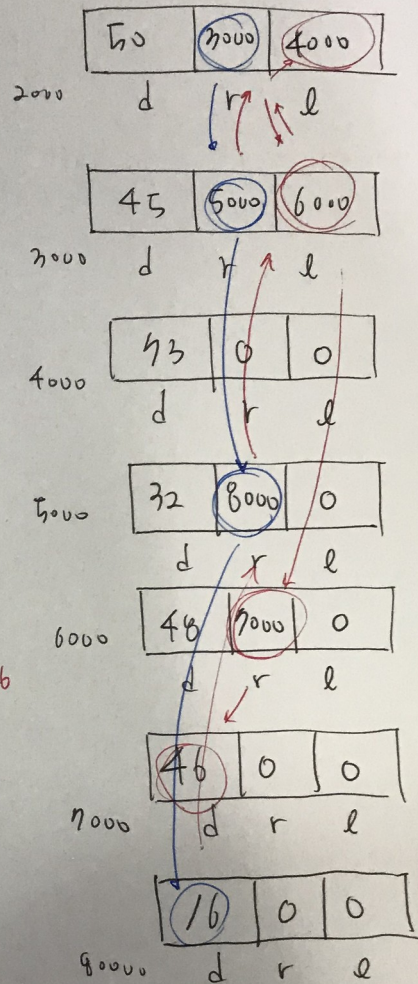 50 3000 4000
2000 d r l
45 5000 6000
3000 d r l
53 0 0
4000 d r l
32 8000 0
5000 d r l
48 7000 0
6000 d r l
6
46 0 0
7000 d r l
16 0 0
80000 d r l